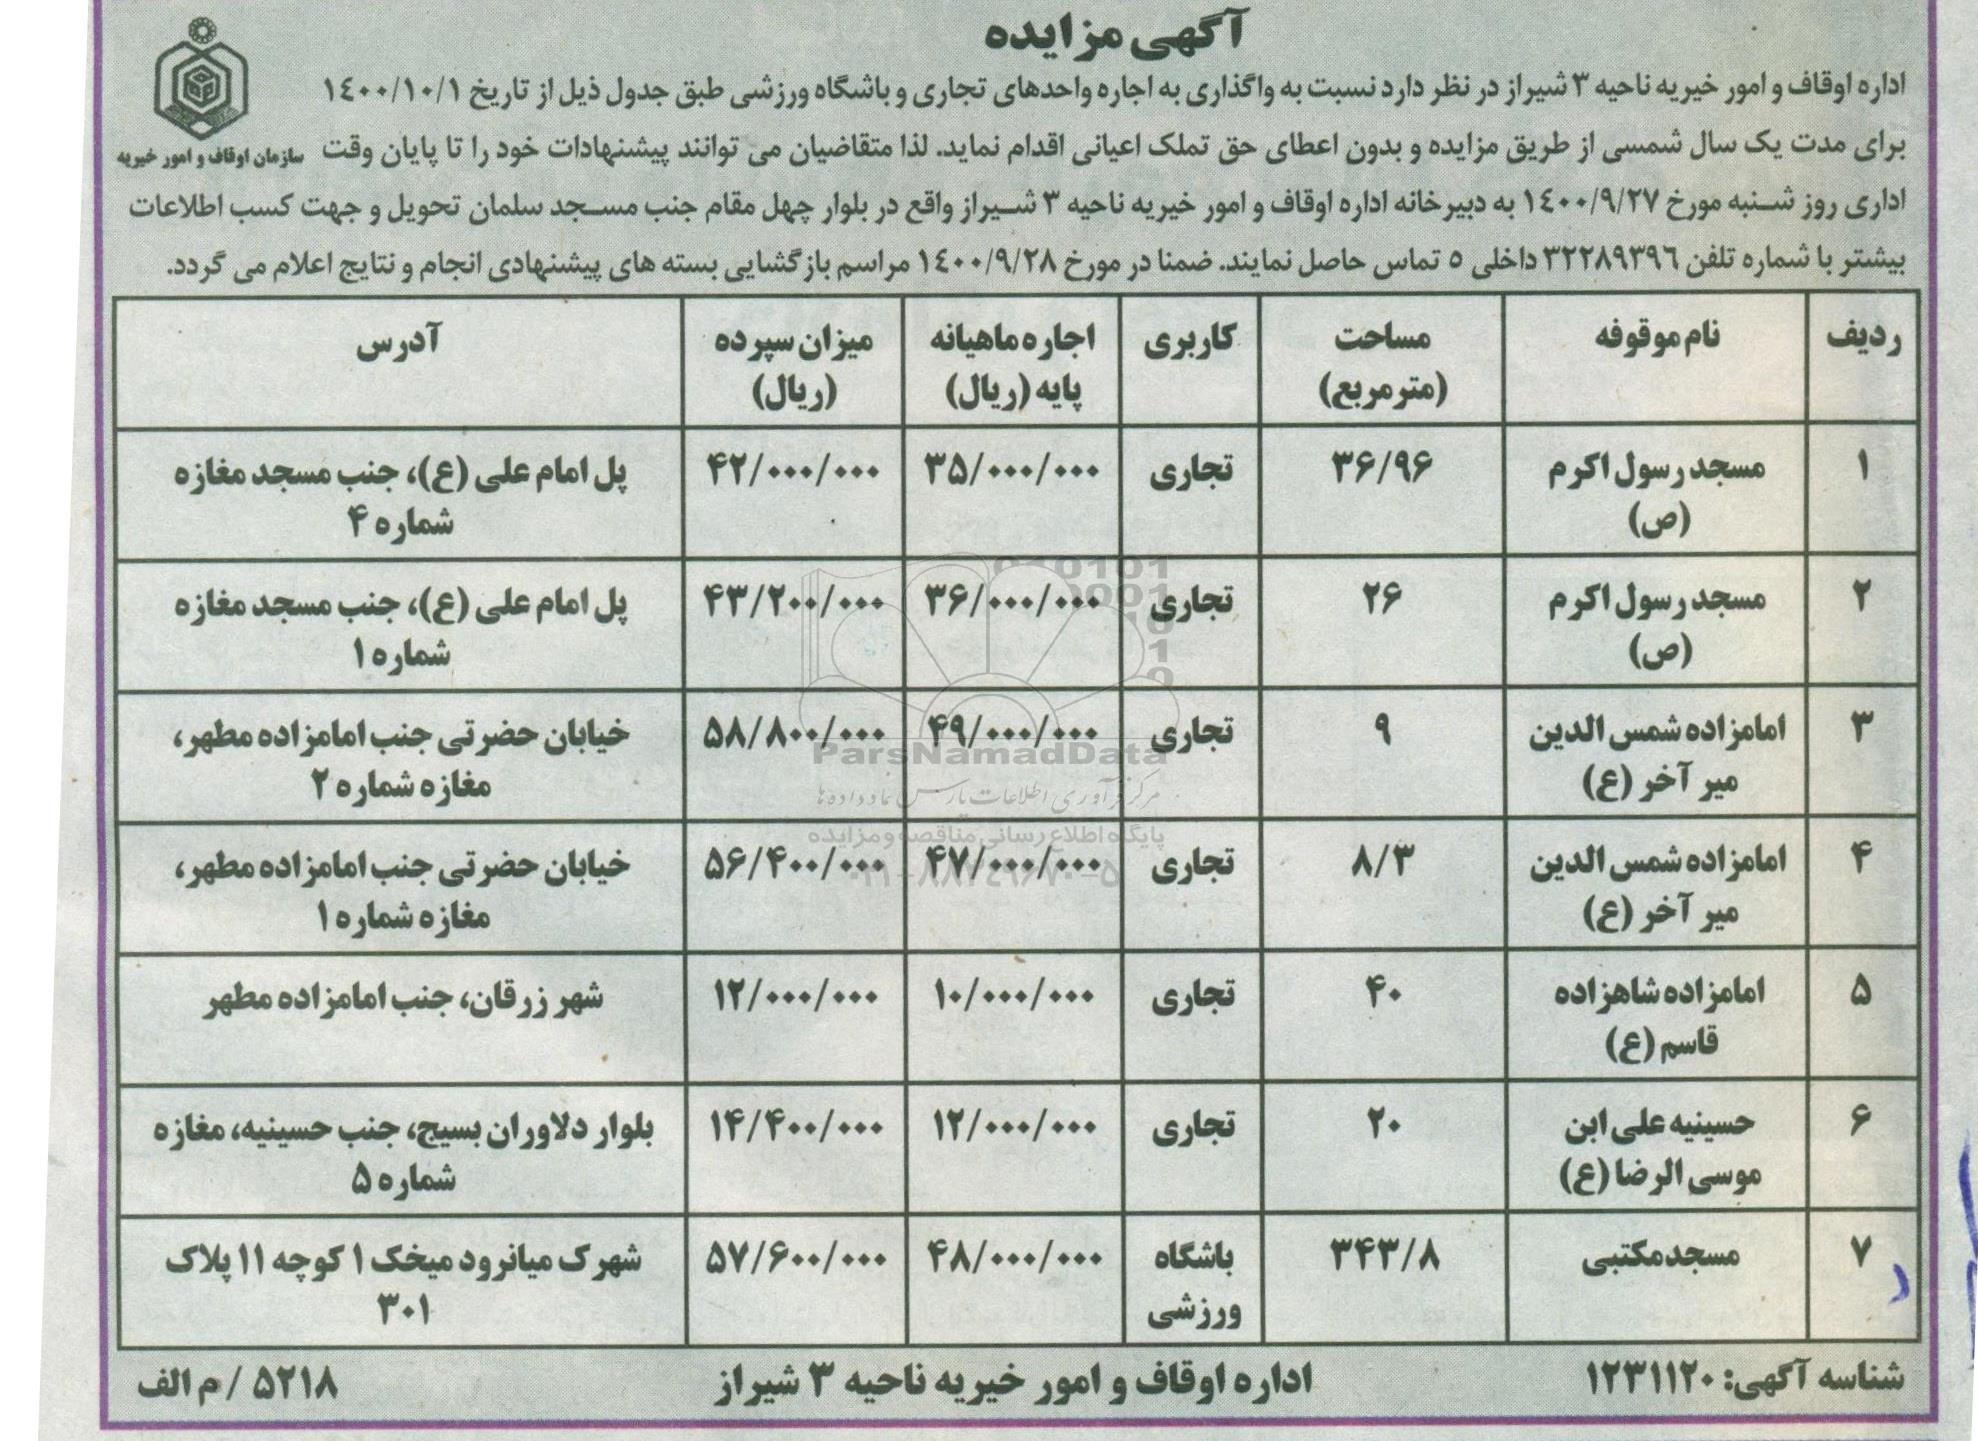 آگهی مزایده
اداره اوقاف و امور خیریه ناحیه ۳ شیراز در نظر دارد نسبت به واگذاری به اجاره واحدهای تجاری و باشگاه ورزشی طبق جدول ذیل از تاریخ ۱٤۰۰/۱۰/۱
برای مدت یک سال شمسی از طریق مزایده و بدون اعطای حق تملک اعیانی اقدام نماید. لذا متقاضیان می توانند پیشنهادات خود را تا پایان وقت
سازمان اوقاف و امور خیریه
اداری روز شنبه مورخ ۱٤۰۰/۹/۲۷ به دبیرخانه اداره اوقاف و امور خیریه ناحیه ۳ شیراز واقع در بلوار چهل مقام جنب مسجد سلمان تحویل و جهت کسب اطلاعات
بیشتر با شماره تلفن ۳۲۲۸۹۳۹٦ داخلی ٥ تماس حاصل نمایند. ضمنا در مورخ ۱٤۰۰/۹/۲۸ مراسم بازگشایی بسته های پیشنهادی انجام و نتایج اعلام می گردد.
ردیف نام موقوفه مساحت کاربری اجاره ماهیانه میزان سپرده آدرس
(مترمربع) پایه (ریال) (ریال)
۱ مسجد رسول اکرم ۳۶/۹۶ تجاری ۳۵/۰۰۰/۰۰۰ ۴۲/۰۰۰/۰۰۰ پل امام علی (ع)، جنب مسجد مغازه
(ص) شماره ۴
۲ مسجد رسول اکرم ۲۶ تجاری ۳۶/۰۰۰/۰۰۰ ۴۳/۲۰۰/۰۰۰ پل امام علی (ع)، جنب مسجد مغازه
(ص) شماره ۱
۳ امامزاده شمس الدین ۹ تجاری ۴۹/۰۰۰/۰۰۰ ۵۸/۸۰۰/۰۰۰ خیابان حضرتی جنب امامزاده مطهر،
میر آخر (ع) مغازه شماره ۲
ParsNamadData
مرکز فرآوری اطلاعات پارس نماد داده ها
پایگاه اطلاع رسانی مناقصه و مزایده
۴ امامزاده شمس الدین ۸/۳ تجاری ۴۷/۰۰۰/۰۰۰ ۵۶/۴۰۰/۰۰۰ خیابان حضرتی جنب امامزاده مطهر،
میر آخر (ع) مغازه شماره ۱
۵ امامزاده شاهزاده ۴۰ تجاری ۱۰/۰۰۰/۰۰۰ ۱۲/۰۰۰/۰۰۰ شهر زرقان، جنب امامزاده مطهر
قاسم (ع)
۶ حسینیه علی ابن ۲۰ تجاری ۱۲/۰۰۰/۰۰۰ ۱۴/۴۰۰/۰۰۰ بلوار دلاوران بسیج، جنب حسینیه، مغازه
موسی الرضا (ع) شماره ۵
۷ مسجد مکتبی ۳۴۳/۸ باشگاه ۴۸/۰۰۰/۰۰۰ ۵۷/۶۰۰/۰۰۰ شهرک میانرود میخک ۱ کوچه ۱۱ پلاک
ورزشی ۳۰۱
شناسه آگهی: ۱۲۳۱۱۲۰ اداره اوقاف و امور خیریه ناحیه ۳ شیراز ۵۲۱۸ / م الف